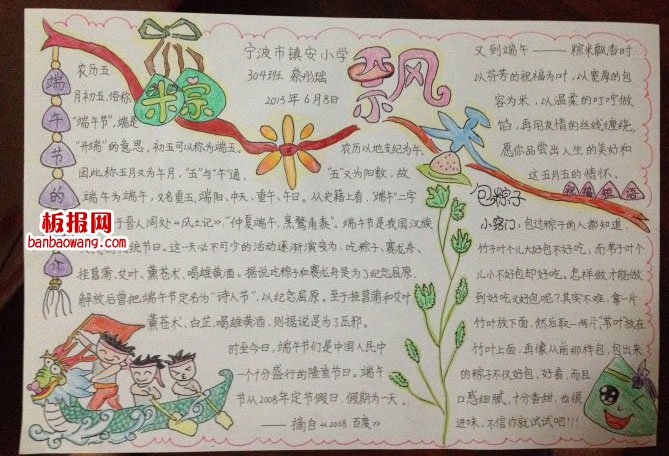 宁波市镇安小学
304班 蔡彤瑞
2013年6月8日
粽
飘
端午节的
农历五
月初五,俗称
“端午节”,端是
“开端”的意思,初五可以称为端五。
农历以地支纪为午,
因此称五月又为午月,“五”与“午”通,
“五”又为阳数,故
端午为端午,又名重五、端阳、中天、重午、午日。从史籍上看,“端午”二字
于晋人周处《风土记》“仲夏端午,烹鹜角黍”。端午节是我国汉族
统节日。这一天必不可少的活动逐渐演变为:吃粽子、赛龙舟、
挂菖蒲、艾叶、薰苍术、喝雄黄酒。据说吃粽子和赛龙舟是为了纪念屈原,
解放后曾把端午节定名为“诗人节”,以纪念屈原。至于挂菖蒲和艾叶
薰苍术、白芷、喝雄黄酒,则据说是为了压邪。
时至今日,端午节们是中国人民中
一个十分盛行的隆重节日。端午
节从2008年定节假日,假期为一天。
——摘自《2008 百度》
又到端午——粽米飘香时
以芬芳的祝福为叶,以宽厚的包
容为米,以温柔的叮咛做
馅,再用友情的丝线缠绕,
愿你品尝出人生的美好和
这五月五的情怀。
祝福短语
包粽子
小窍门:包过粽子的人都知道,
竹子叶个儿大好包不好吃;而苇子叶个
儿小不好包却好吃。怎样做才能做
到好吃又好包呢?其实不难,拿一片
竹叶放下面,然后取一两片苇叶放在
竹叶上面,再像从前那样包,包出来
的粽子不仅好包、好看,而且
口感细腻,十分香甜,也很
进味,不信你就试试吧!!!
板报网
banbaowang.com